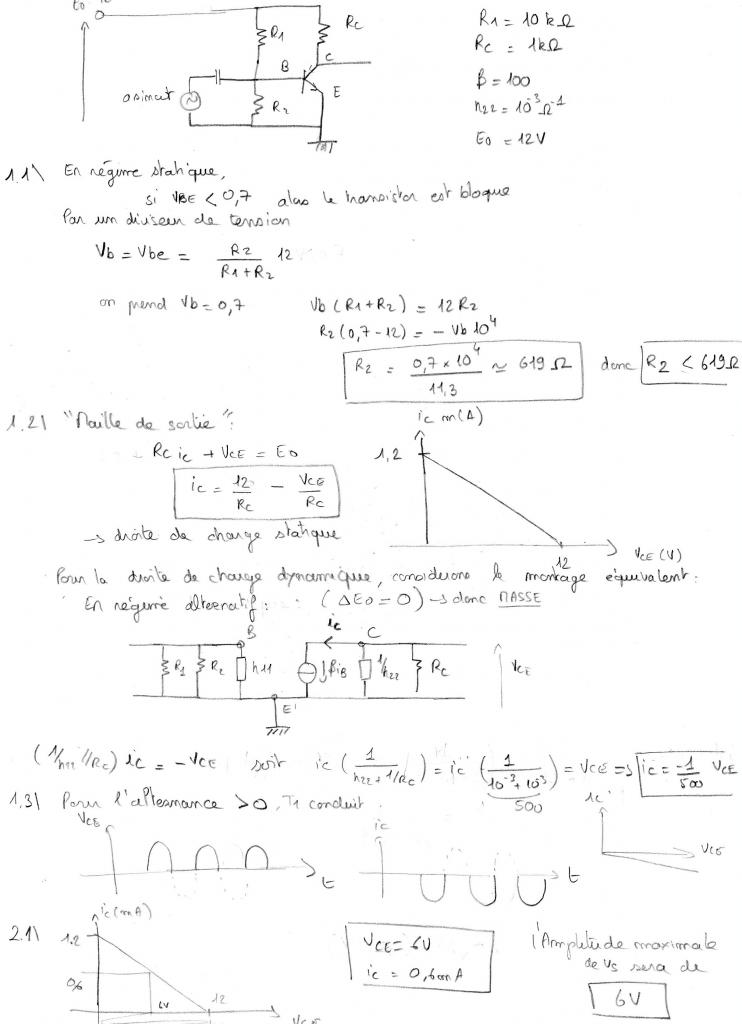 R1 = 10 kΩ
Rc = 1kΩ
β = 100
h22 = 10^-3 Ω^-1
E0 = 12V
R1
Rc
C
B
E
R2
1.1\ En régime statique,
si VBE < 0,7 alors le transistor est bloque
Par un diviseur de tension
Vb = Vbe = R2/(R1+R2) 12
on prend Vb = 0,7
Vb (R1+R2) = 12 R2
R2 (0,7-12) = - Vb 10^4
R2 = (0,7 x 10^4)/11,3 ≃ 619 Ω donc R2 < 619Ω
1.2\ "Maille de sortie":
Rc ic + VCE = E0
ic = 12/Rc - VCE/Rc
→ droite de charge statique
ic m(A)
1,2
12
VCE (V)
Pour la droite de charge dynamique, considerons le montage équivalent:
En régime alternatif: (ΔE0 = 0) → donc MASSE
B
ic
C
R1
R2
h11
βiB
1/h22
Rc
VCE
E
(1/h22 // Rc) ic = - VCE soit ic (1/(h22 + 1/Rc)) = ic (1/(10^-3 + 10^3)) = VCE => ic = -1/500 VCE
500
1.3\ Pour l'alternance > 0, T1 conduit.
VCE
t
ic
t
ic
VCE
2.1\
ic (mA)
1.2
0,6
6V
12
VCE
VCE = 6V
ic = 0,6 mA
l'Amplitude maximale
de Vs sera de
6V